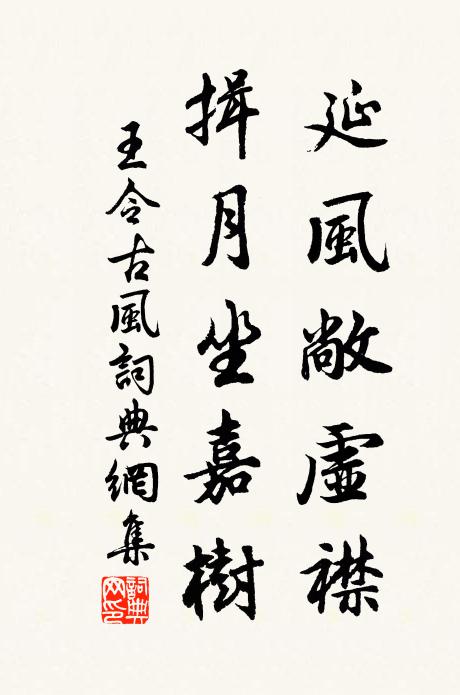 延風敞虛襟
揖月坐嘉樹
王令古風詞典網集
詞典網印